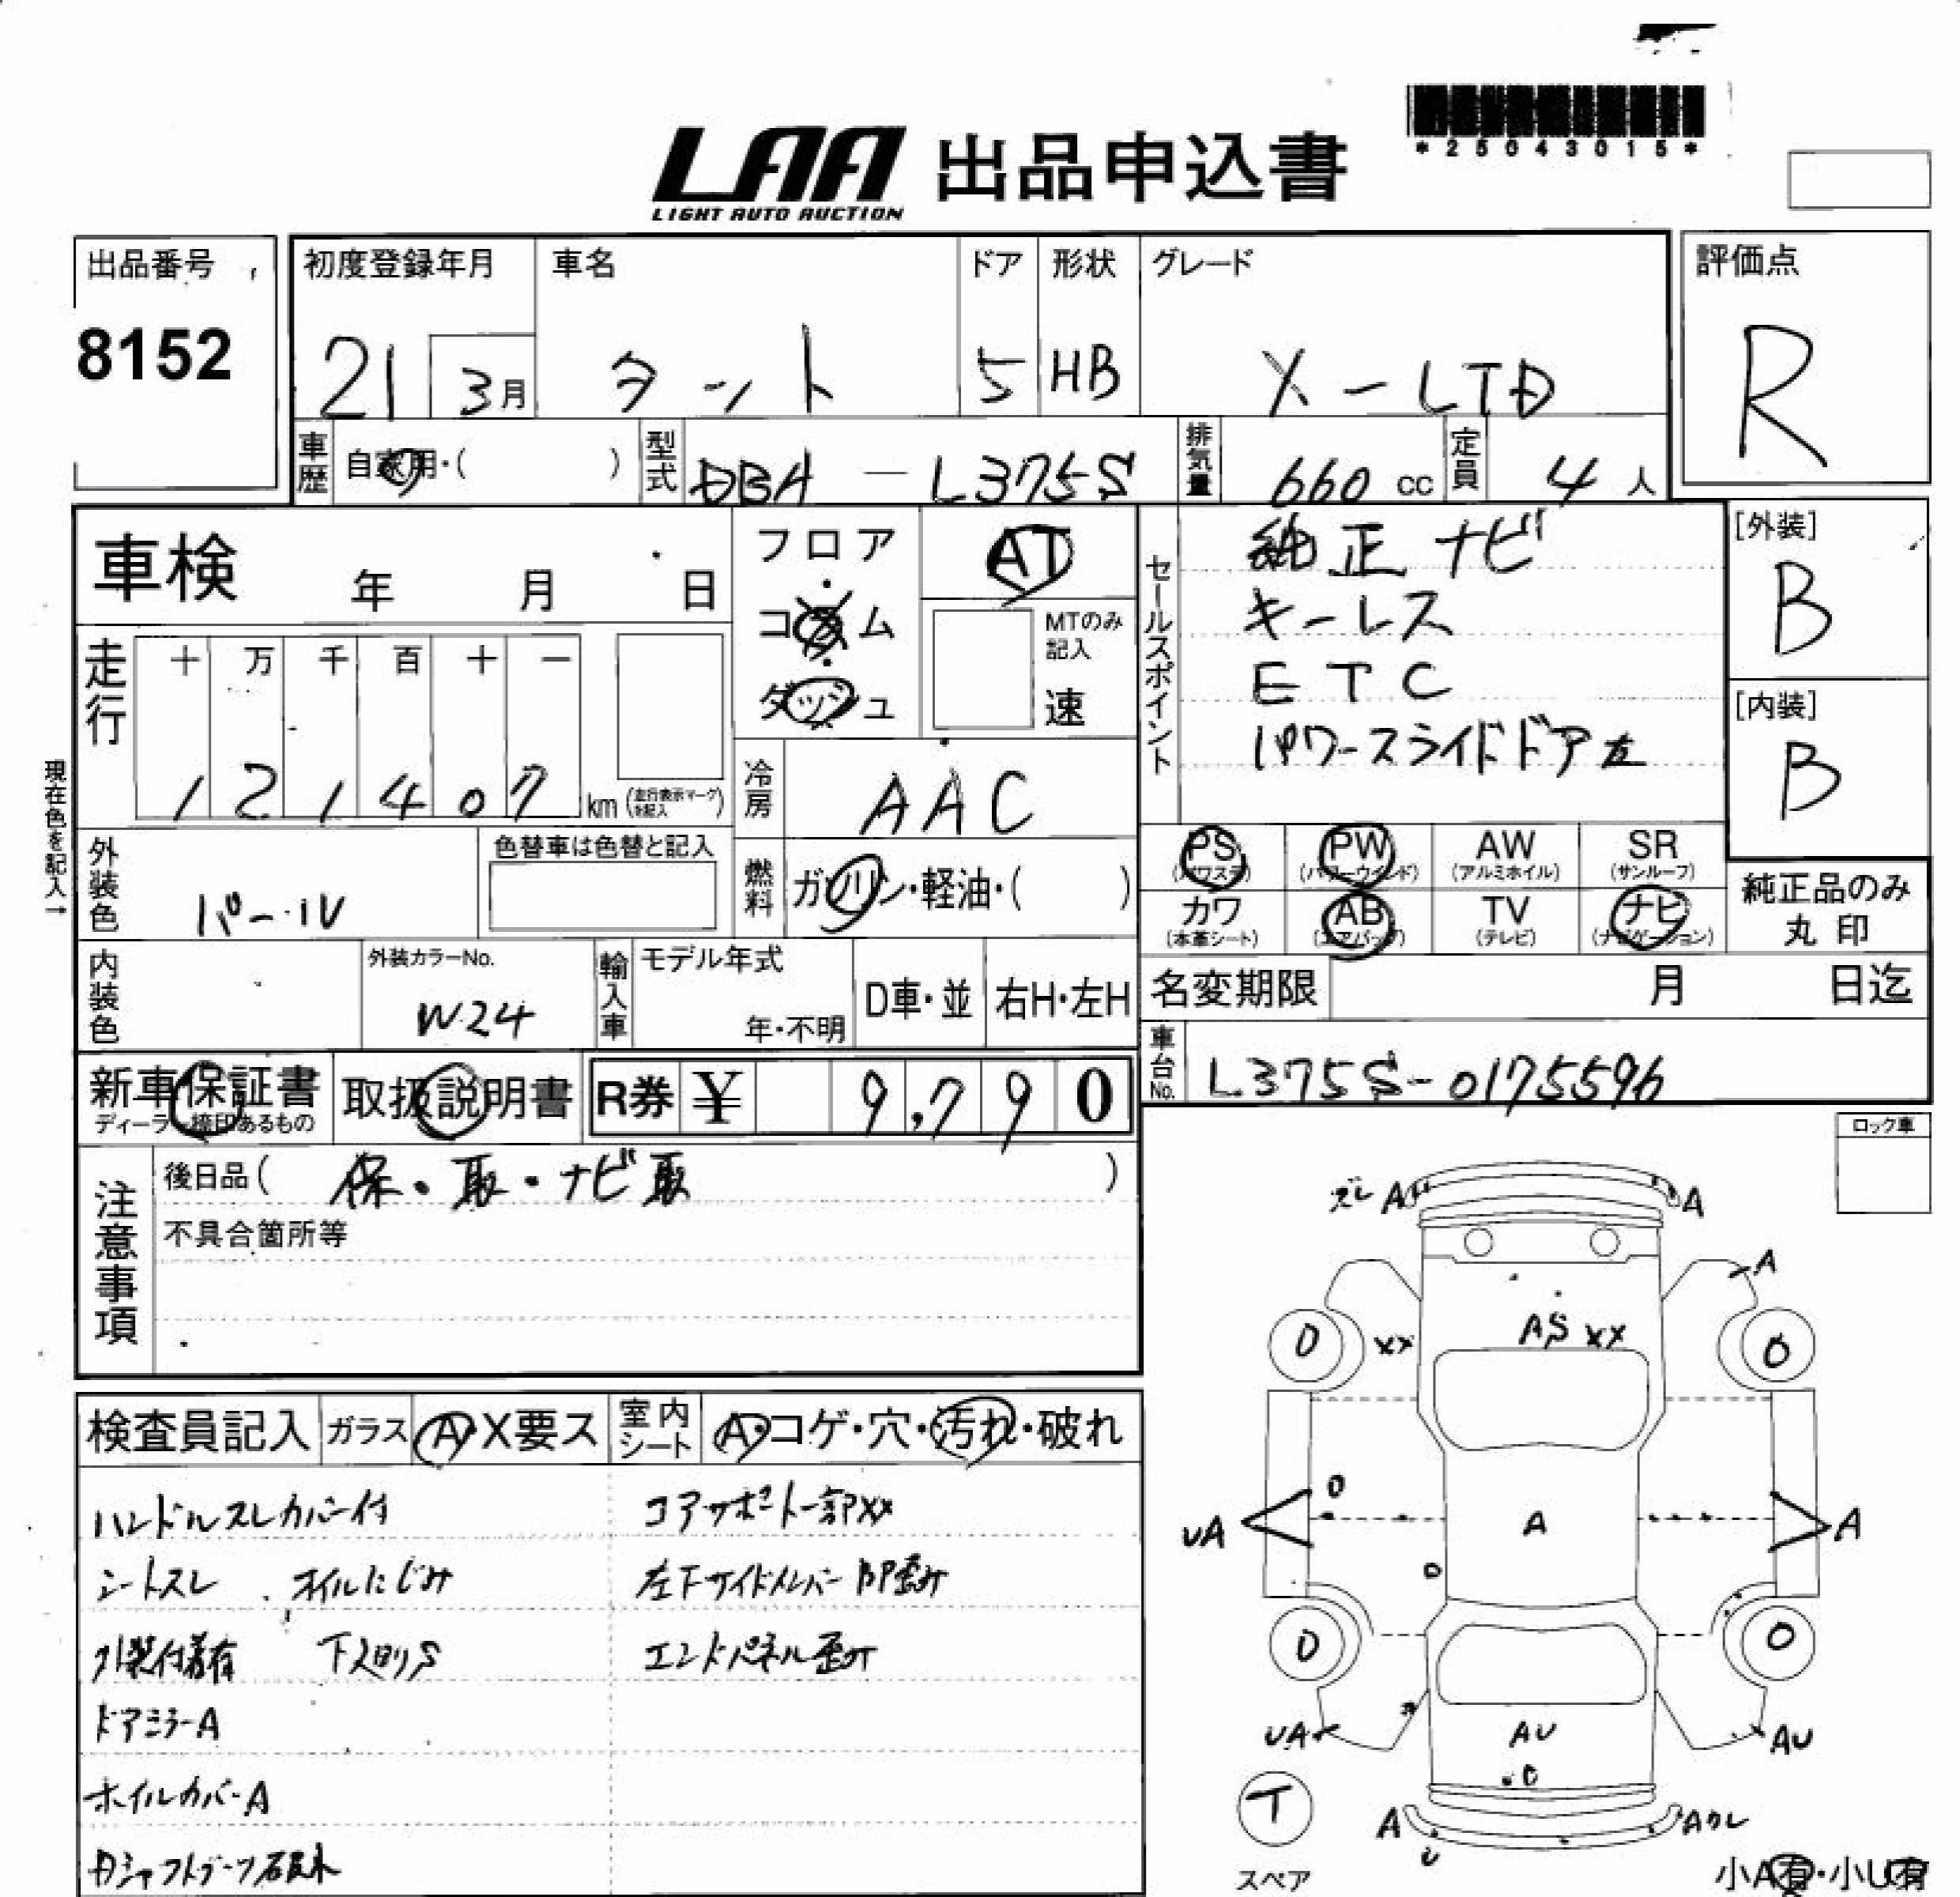 *25043015*
LAA 出品申込書
LIGHT AUTO AUCTION
出品番号 初度登録年月 車名 ドア 形状 グレード 評価点
8152 21 3月 タント 5 HB X-LTD R
車歴 自家用・( ) 型式 DBA-L375S 排気量 660 cc 定員 4 人
車検 年 月 日
フロア AT
コラム MTのみ記入
ダッシュ 速
セールスポイント
純正ナビ
キーレス
ETC
パワースライドドア左
[外装]
B
[内装]
B
現在色を記入→
走行 十 万 千 百 十 一
1 2 1 4 0 7 km (走行表示マークを記入)
冷房 AAC
外装色 パール 色替車は色替と記入
燃料 ガソリン・軽油・( )
PS (パワステ) PW (パワーウインド) AW (アルミホイル) SR (サンルーフ)
カワ (本革シート) AB (エアバッグ) TV (テレビ) ナビ (ナビゲーション)
純正品のみ
丸印
内装色 外装カラーNo. W24
輸入車 モデル年式 年・不明 D車・並 右H・左H
名変期限 月 日迄
車台No. L375S-0175596
新車保証書 取扱説明書 R券 ¥ 9,790
ディーラー捺印あるもの
注意事項
後日品( 保・取・ナビ取 )
不具合箇所等
ロック車
検査員記入 ガラス A・X要ス 室内シート A・コゲ・穴・汚れ・破れ
ハンドルスレカバー付 コアサポート一部XX
シートスレ オイルにじみ 左下サイドメンバー部P歪み
外装付着有 下廻りS エンドパネル歪み
ドアミラーA
ホイルカバーA
ズレ A A
A
XX AS XX
0 0
UA A A
0 0
UA AU AU
T
スペア
A U Aワレ
小A有・小U有